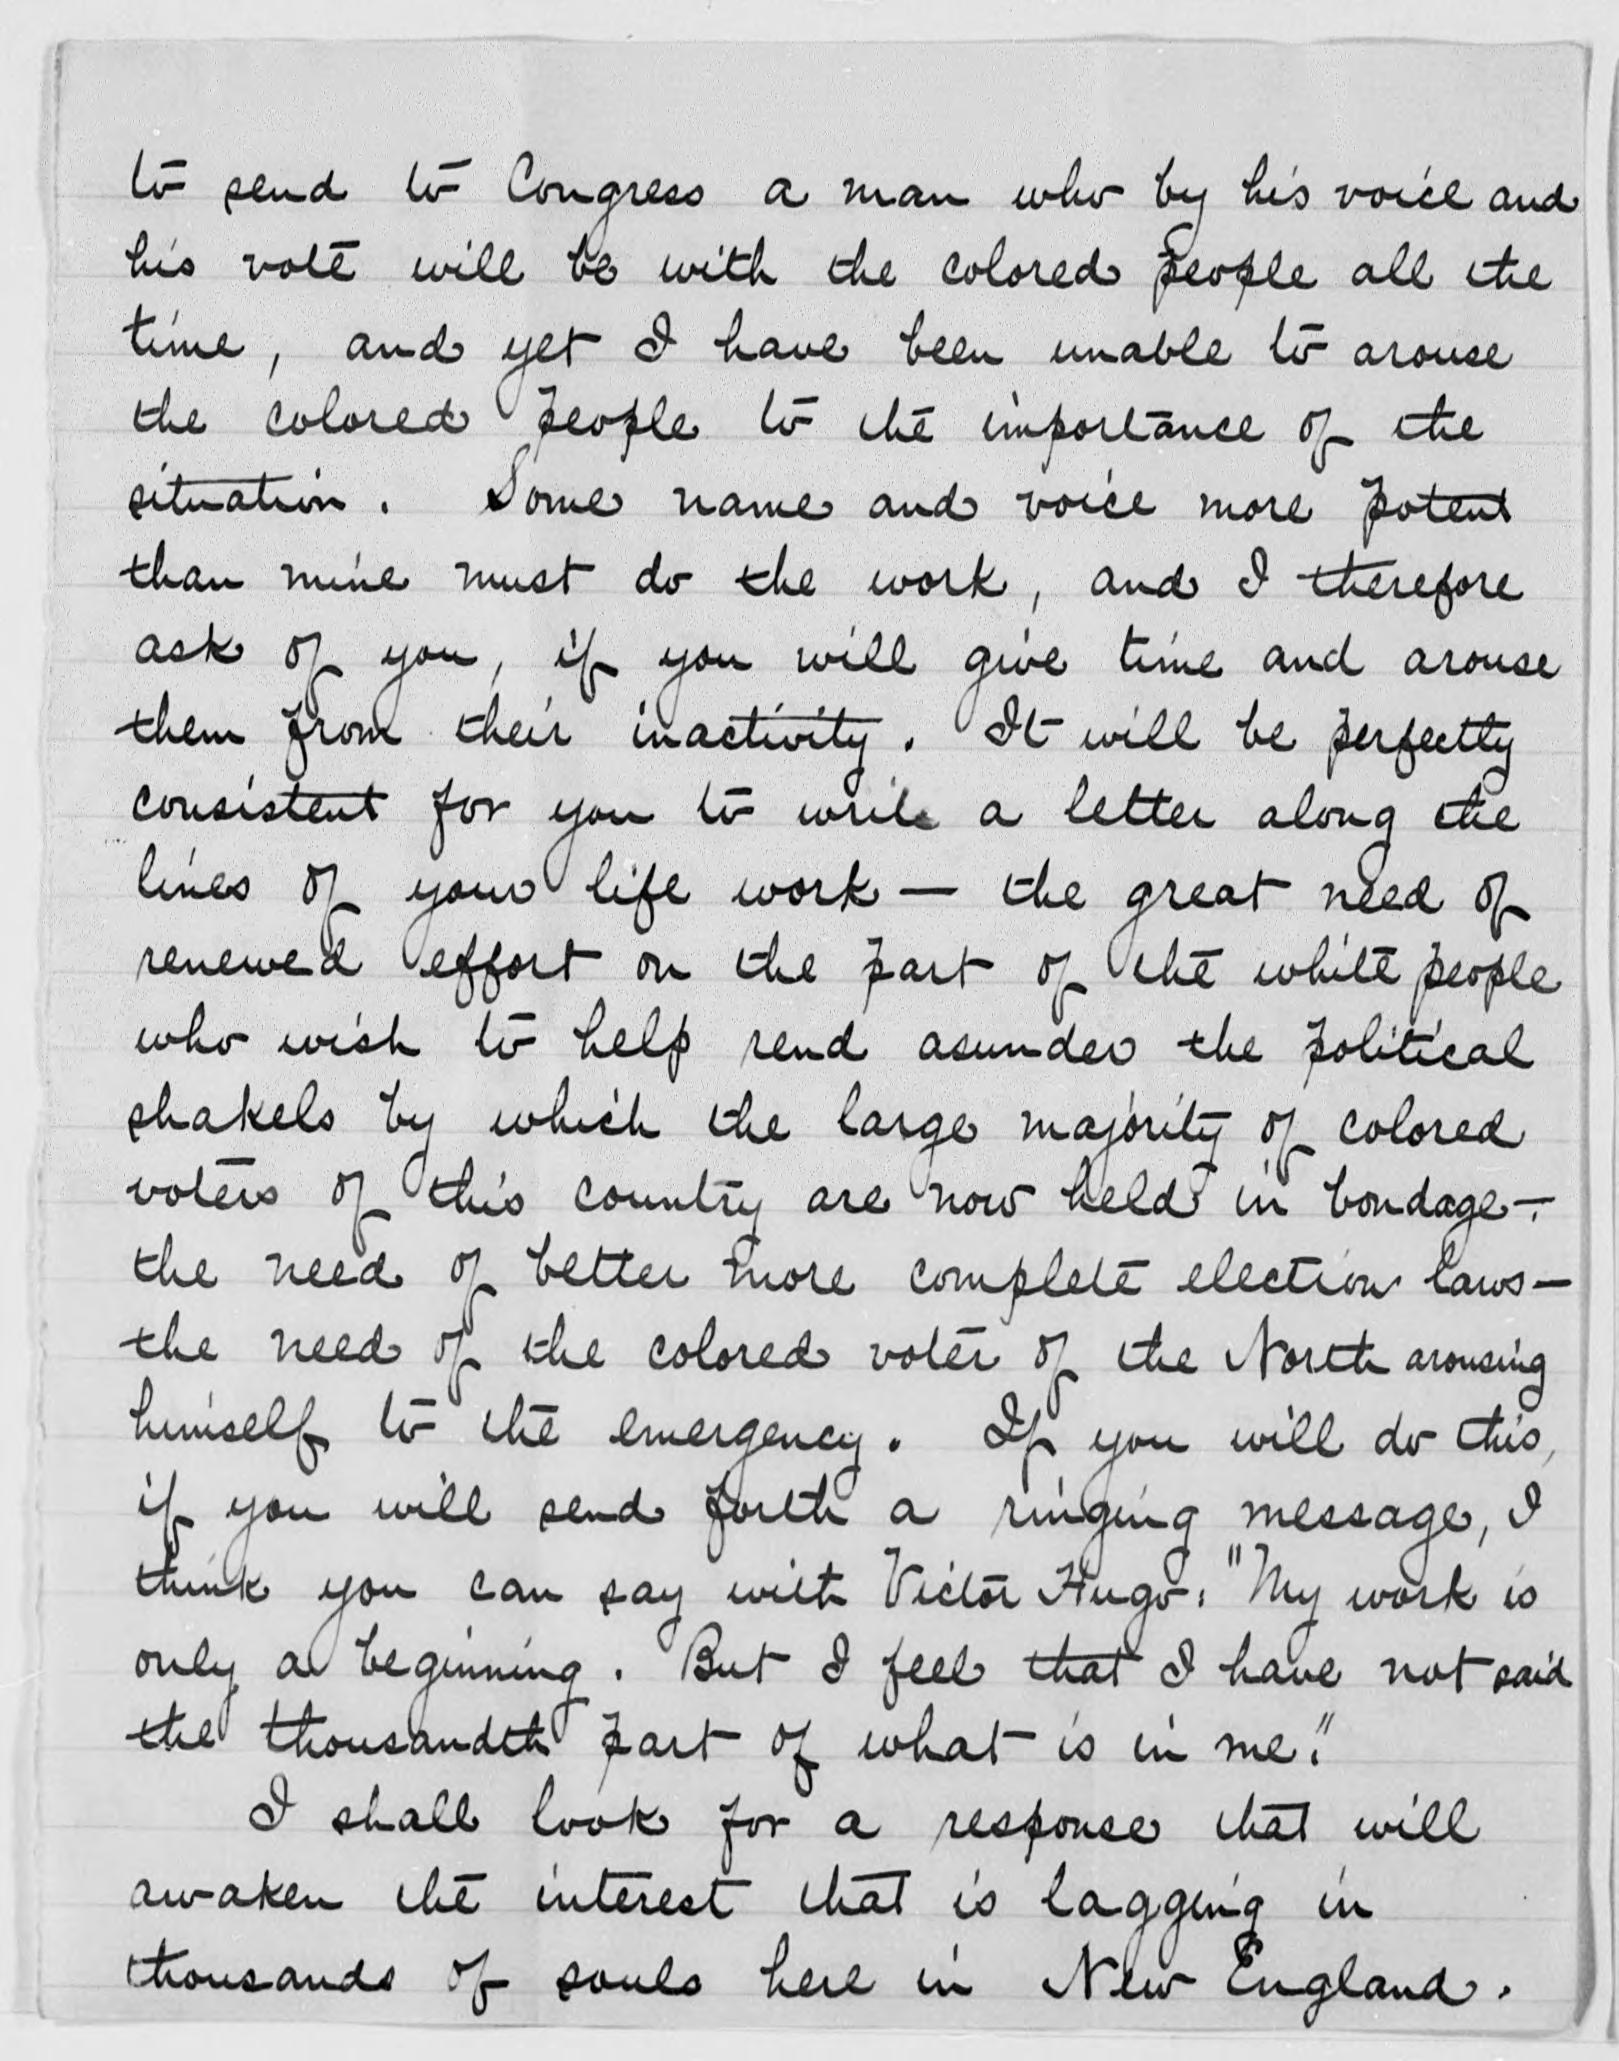 to send to Congress a man who by his voice and
his vote will be with the colored people all the
time, and yet I have been unable to arouse
the colored people to the importance of the
situation. Some name and voice more potent
than mine must do the work, and I therefore
ask of you, if you will give time and arouse
them from their inactivity. It will be perfectly
consistent for you to write a letter along the
lines of your life work — the great need of
renewed effort on the part of the white people
who wish to help rend asunder the political
shakels by which the large majority of colored
voters of this country are now held in bondage —
the need of better more complete election laws —
the need of the colored voter of the North arousing
himself to the emergency. If you will do this,
if you will send forth a ringing message, I
think you can say with Victor Hugo: "My work is
only a beginning. But I feel that I have not said
the thousandth part of what is in me."
I shall look for a response that will
awaken the interest that is lagging in
thousands of souls here in New England.